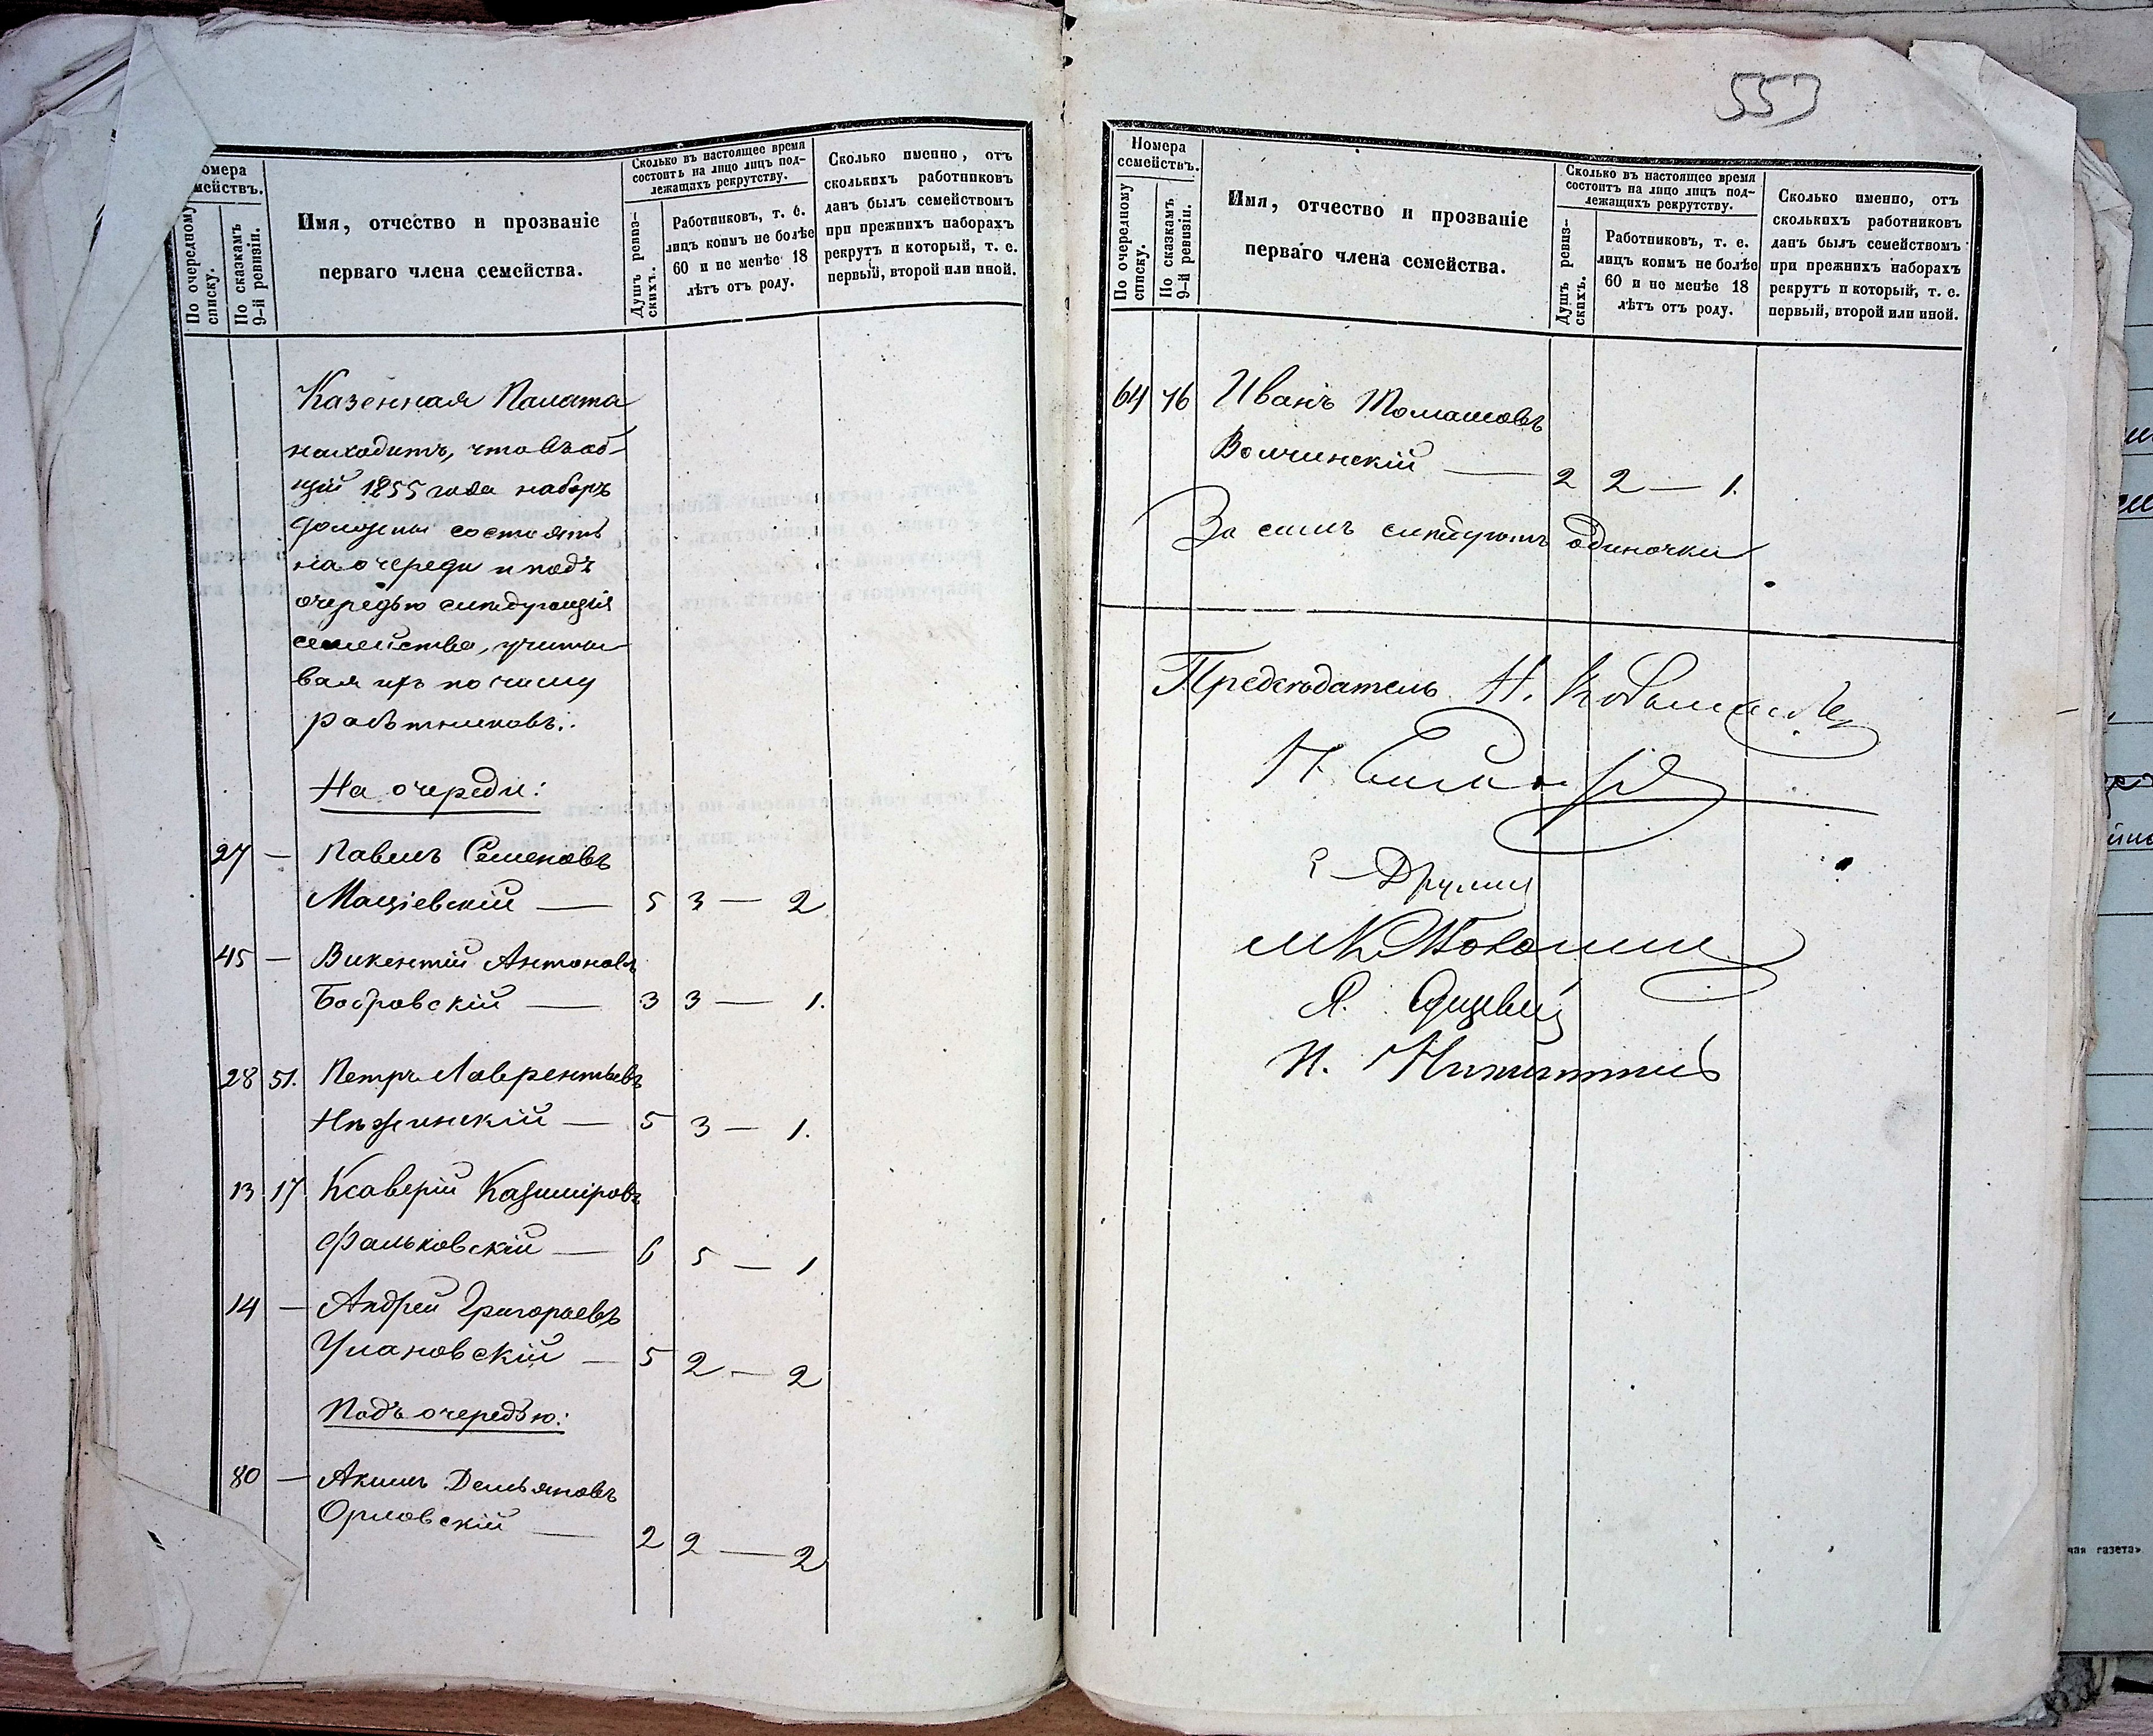 омера
мействъ.
По очередному
списку.
По сказкамъ
9-й ревизіи.
Имя, отчество и прозваніе
перваго члена семейства.
Сколько въ настоящее время
состоитъ на лицо лицъ под-
лежащихъ рекрутству.
Душъ ревиз-
скихъ.
Работниковъ, т. е.
лицъ коимъ не болѣе
60 и не менѣе 18
лѣтъ отъ роду.
Сколько именно, отъ
сколькихъ работниковъ
данъ былъ семействомъ
при прежнихъ наборахъ
рекрутъ и который, т. е.
первый, второй или иной.
Казенная Палата
находитъ, что въ об-
щій 1855 года наборъ
должны состоять
на очереди и подъ
очередью слѣдующія
семейства, учиты-
вая ихъ по числу
работниковъ:
На очереди:
27 — Павелъ Семеновъ
Мацѣевскій — 5 3 — 2
45 — Викентій Антоновъ
Бобровскій — 3 3 — 1.
28 51. Петръ Лаврентьевъ
Нѣжинскій — 5 3 — 1.
13 17 Ксаверій Казиміровъ
Фальковскій — 6 5 — 1
14 — Андрей Григорьевъ
Улановскій — 5 2 — 2
Подъ очередью:
80 — Акимъ Демьяновъ
Орловскій — 2 2 — 2
553
Номера
семействъ.
По очередному
списку.
По сказкамъ
9-й ревизіи.
Имя, отчество и прозваніе
перваго члена семейства.
Сколько въ настоящее время
состоитъ на лицо лицъ под-
лежащихъ рекрутству.
Душъ ревиз-
скихъ.
Работниковъ, т. е.
лицъ коимъ не болѣе
60 и не менѣе 18
лѣтъ отъ роду.
Сколько именно, отъ
сколькихъ работниковъ
данъ былъ семействомъ
при прежнихъ наборахъ
рекрутъ и который, т. е.
первый, второй или иной.
64 76 Иванъ Томашовъ
Волчинскій — 2 2 — 1.
За симъ слѣдуютъ одиночки
Предсѣдатель Н.
Н.
М
Я.
Н. Никитинъ
чая газета»